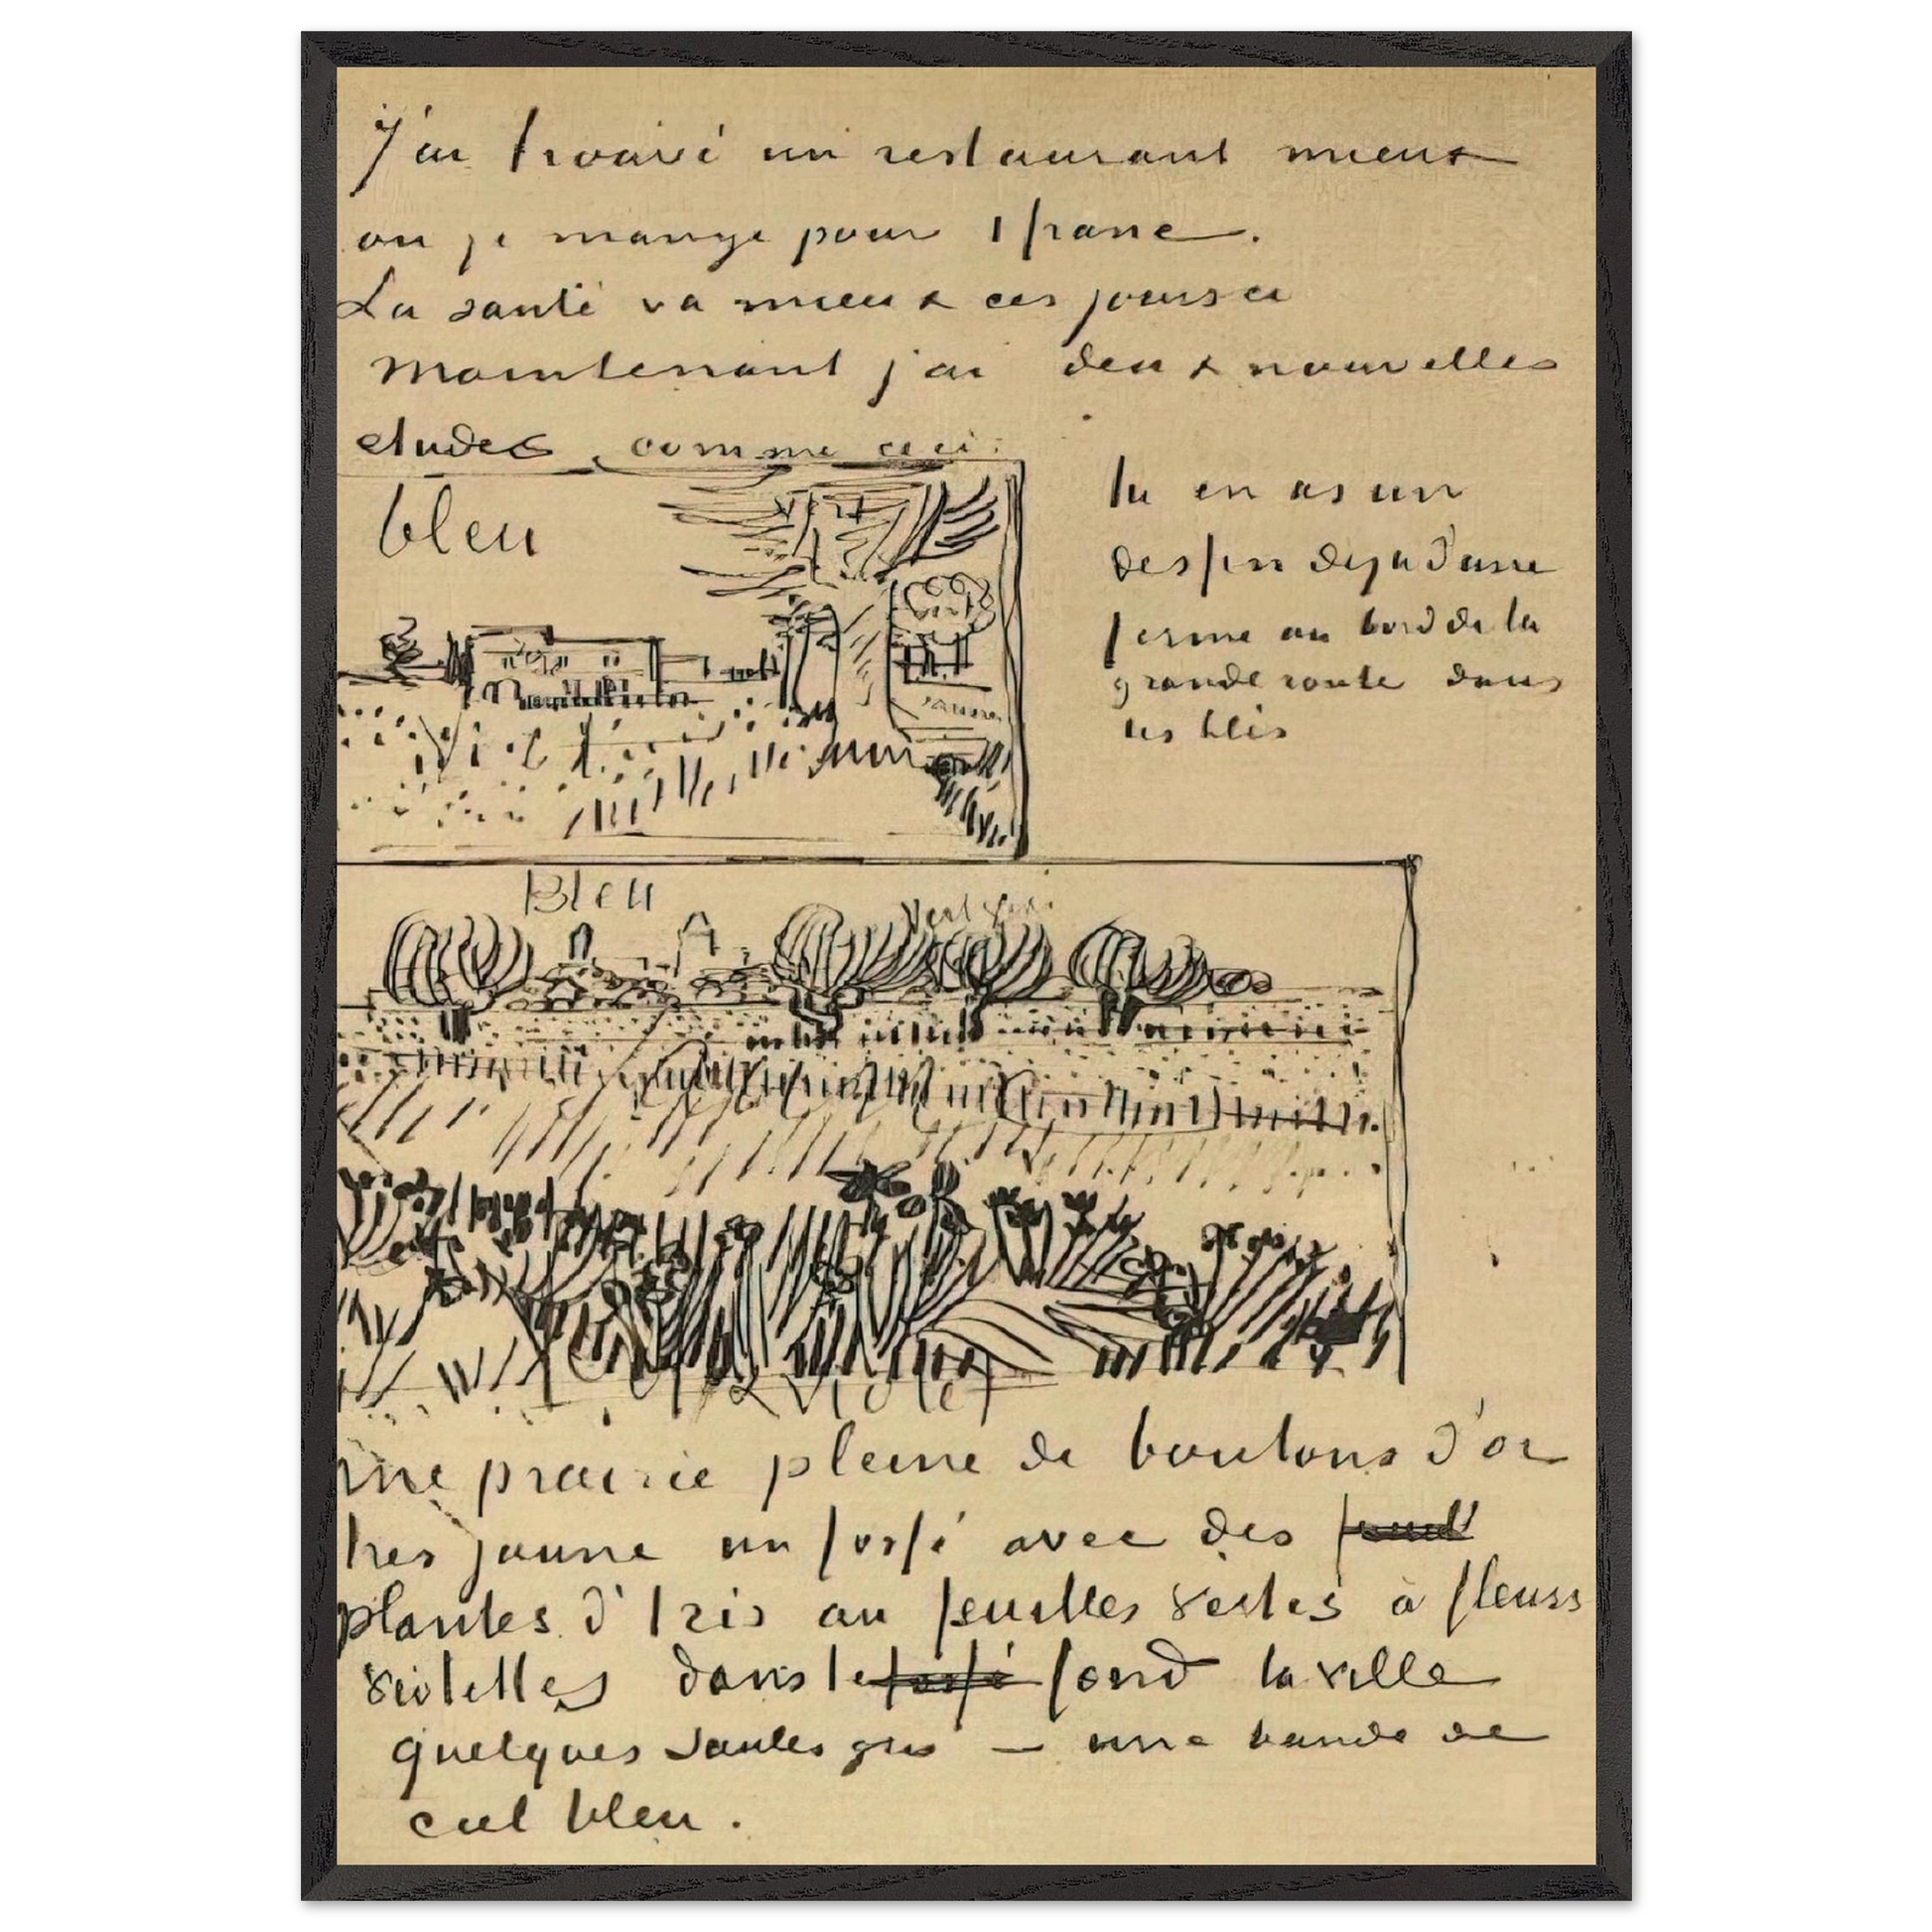 J'ai trouvé un restaurant mieux
ou je mange pour 1 franc.
La santé va mieux ces jours ci
Maintenant j'ai deux nouvelles
etudes, comme ceci:
bleu
vert
tu en as un
dessin deja d'une
ferme au bord de la
grande route dans
les blés
vert
rose
jaune
Bleu
vert gris
violet
une prairie pleine de boutons d'or
tres jaune un fossé avec des
plantes d'Iris au feuilles vertes à fleurs
violettes dans le fossé fond la ville
quelques saules gris – une bande de
ciel bleu.